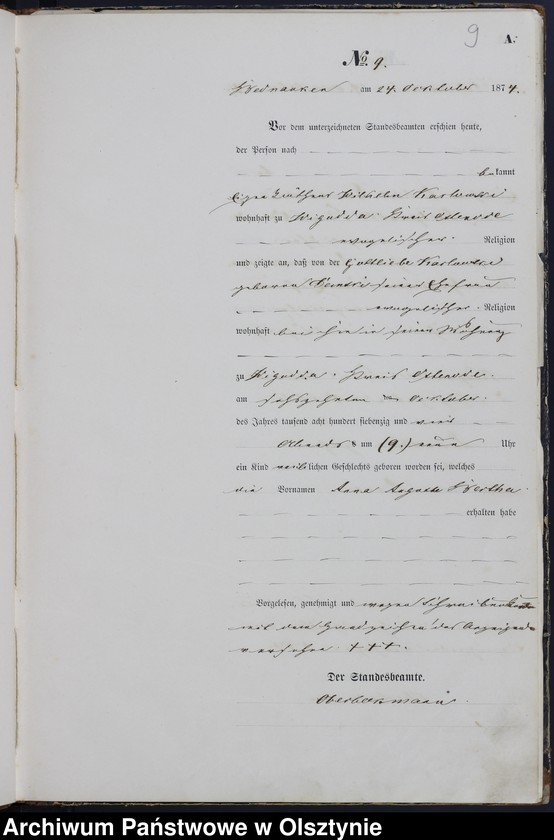 9
A.
No. 9.
am 24. October 1874.
Vor dem unterzeichneten Standesbeamten erschien heute,
der Person nach
bekannt
Eigenkäthner
wohnhaft zu Kreis Osterode
evangelischer Religion
und zeigte an, daß von der Gottliebe
geborenen seiner Ehefrau
evangelischer Religion
wohnhaft bei ihm in seiner Wohnung
zu Kreis Osterode
am sechszehnten October
des Jahres tausend acht hundert siebenzig und vier
Abends um (9.) neun Uhr
ein Kind weiblichen Geschlechts geboren worden sei, welches
die Vornamen Anna Auguste Bertha
erhalten habe
Vorgelesen, genehmigt und wegen
mit dem Handzeichen des
versehen +++.
Der Standesbeamte.
Archiwum Państwowe w Olsztynie